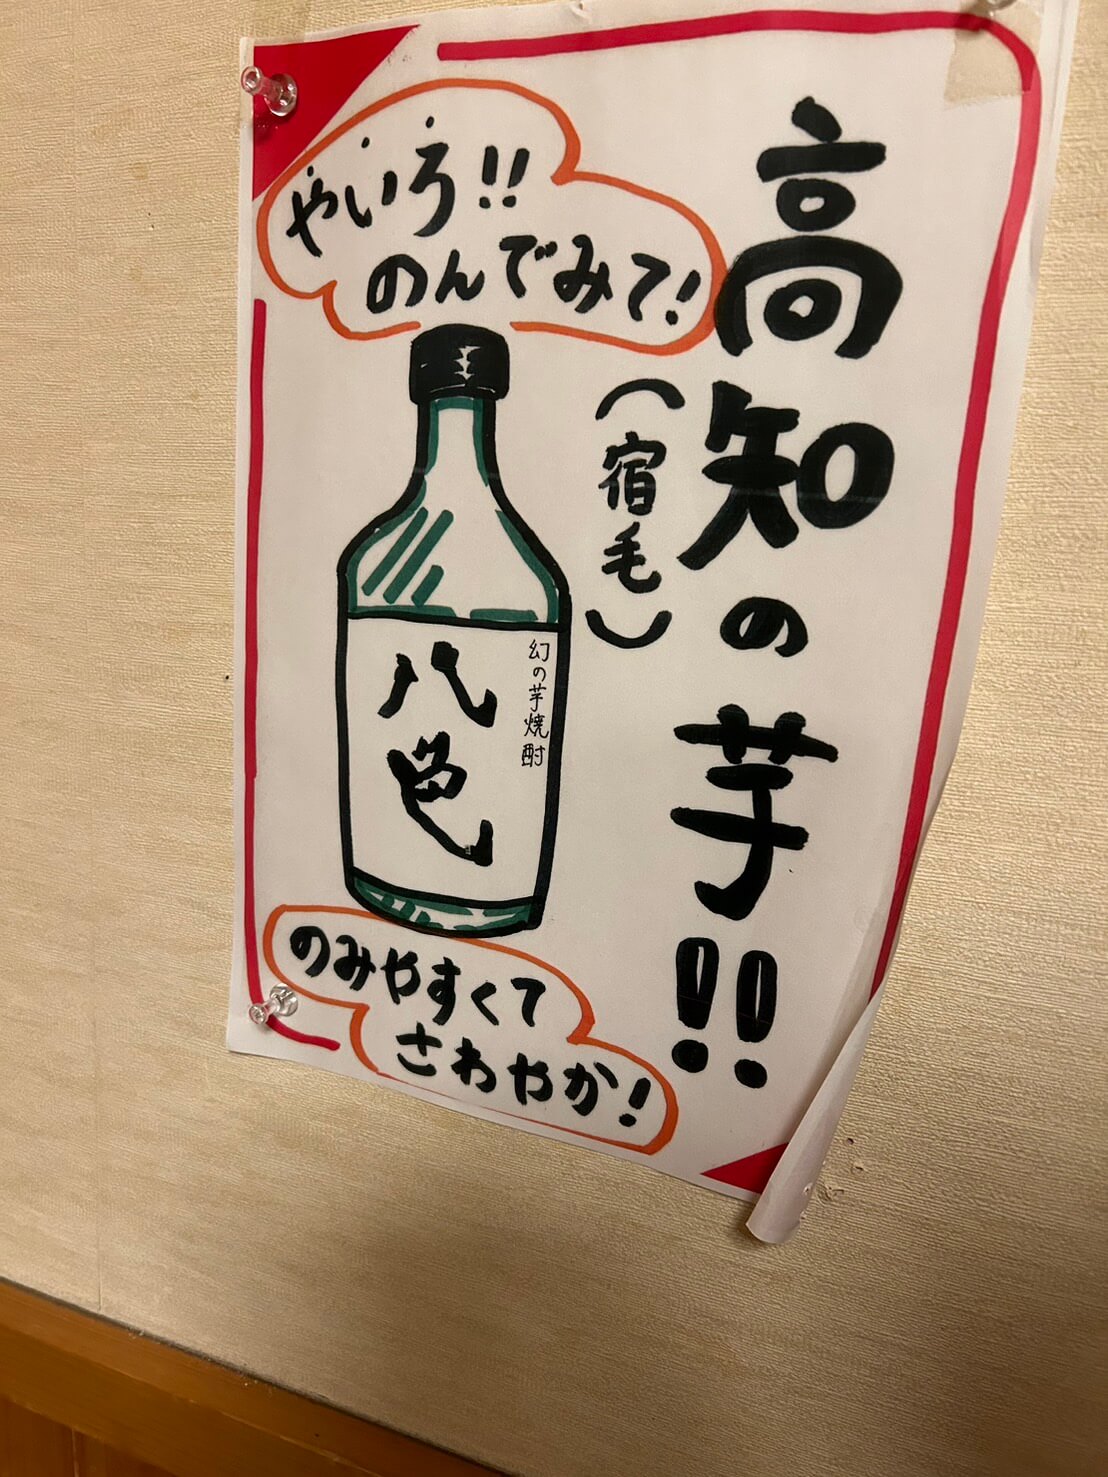 高知の芋!!
(宿毛)
やいろ!!
のんでみて!
幻の芋焼酎
八色
のみやすくて
さわやか!